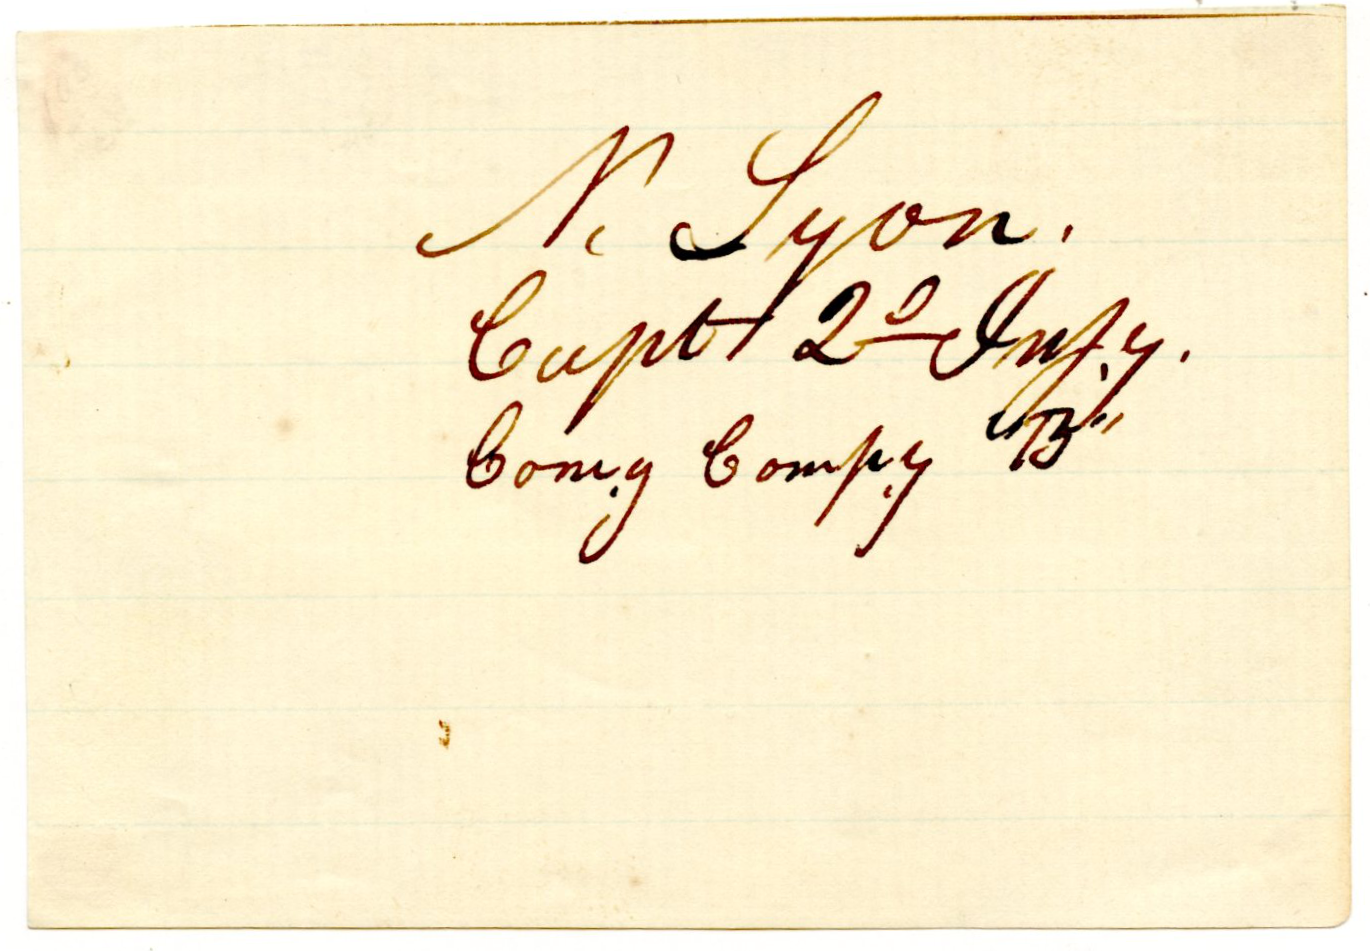 N. Lyon.
Capt 2d Inf.y.
Com.g Comp.y "B"